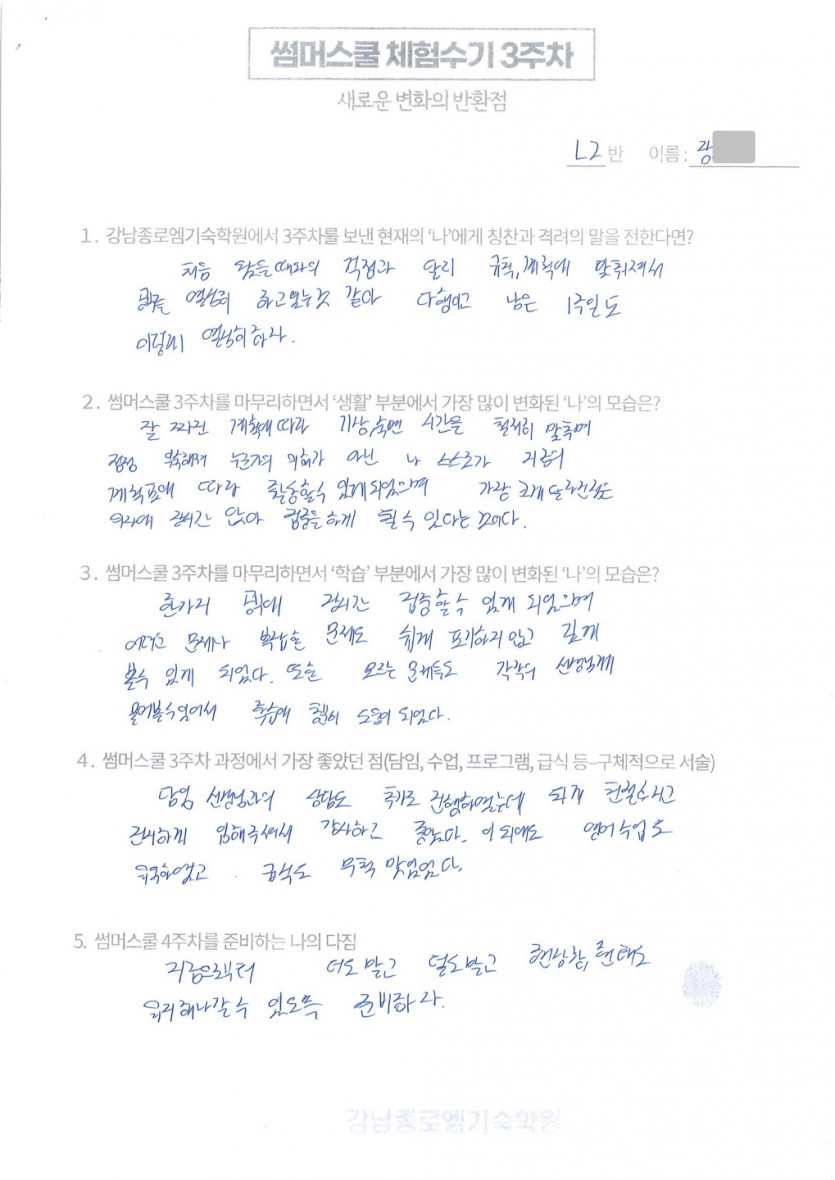 썸머스쿨 체험수기 3주차
새로운 변화의 반환점
L2 반 이름 : 강
1. 강남종로엠기숙학원에서 3주차를 보낸 현재의 '나'에게 칭찬과 격려의 말을 전한다면?
처음 왔을때와의 걱정과 달리 규칙, 계획에 맞춰져서
열심히 하고있는것 같아 다행이고 남은 1주일도
이렇게 열심히하자.
2. 썸머스쿨 3주차를 마무리하면서 '생활' 부분에서 가장 많이 변화된 '나'의 모습은?
잘 짜진 계획에 따라 기상, 숙면 시간을 철저히 맞추며
점점 익숙해져 누군가의 의해가 아닌 나 스스로가 지금의
계획표에 따라 활동할수 있게 되었으며 가장 크게 달라진점은
의자에 장시간 앉아 집중을 하게 될 수 있다는 것이다.
3. 썸머스쿨 3주차를 마무리하면서 '학습' 부분에서 가장 많이 변화된 '나'의 모습은?
한가지 장시간 집중할수 있게 되었으며
어려운 문제나 복잡한 문제도 쉽게 포기하지않고 길게
볼수 있게 되었다. 또한 모르는 문제들도 각각의 선생님께
물어볼수있어서 학습에 많이 도움이 되었다.
4. 썸머스쿨 3주차 과정에서 가장 좋았던 점(담임, 수업, 프로그램, 급식 등-구체적으로 서술)
담임 선생님과의 상담도 추가로 진행하였는데 되게 친절하시고
진지하게 임해주셔서 감사하고 좋았다. 이 외에도 영어 수업도
유익하였고 급식도 무척 맛있었다.
5. 썸머스쿨 4주차를 준비하는 나의 다짐
지금으로부터 더도말고 덜도말고 현상황, 현태도
유지해나갈수 있도록 준비하자.
강남종로엠기숙학원